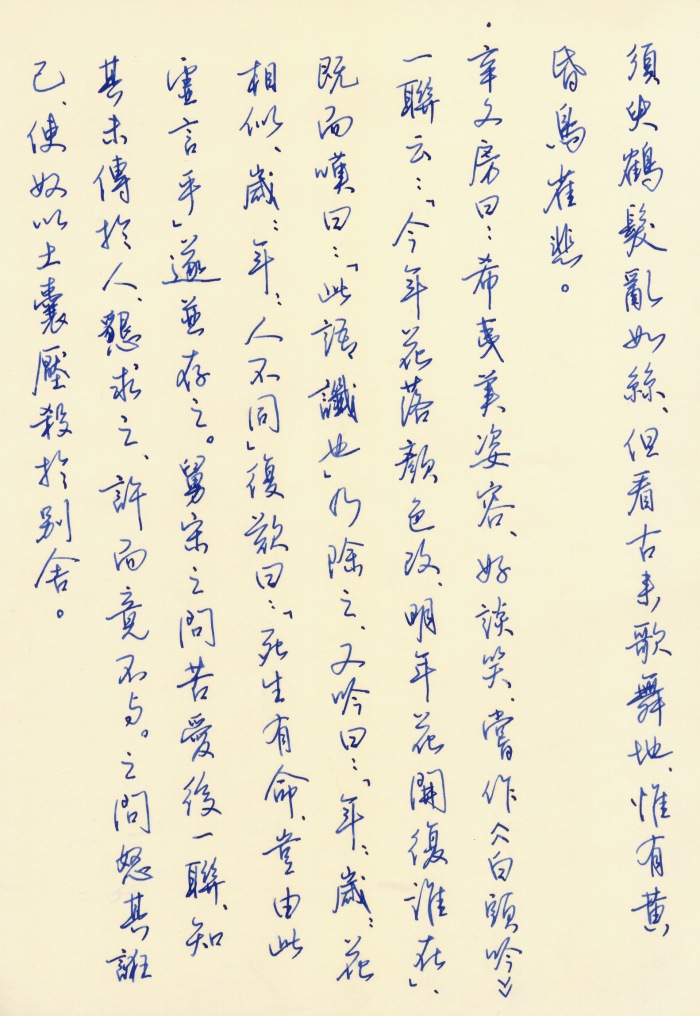 須臾鶴髮亂如絲、但看古来歌舞地、惟有黄
昏鳥雀悲。
·辛文房曰：希夷美姿容、好談笑、嘗作《白頭吟》
一聯云：「今年花落顔色改、明年花開復誰在」、
既而嘆曰：「此語讖也」乃除之、又吟曰：「年：歲：花
相似、歲：年：人不同」復歎曰：「死生有命、豈由此
虛言乎」遂並存之。舅宋之問苦愛後一聯、知
其未傳於人、懇求之、許而竟不与。之問怒其誑
己、使奴以土囊壓殺於别舍。